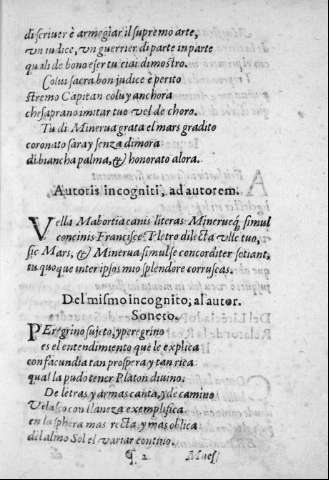 di scriuer è armegiar il supremo arte,
vn iudice, vn guerrier di parte in parte
quali de bono eser tu eiai dimostro.
Colui sacra bon judice è perito
stremo Capitan colu y anchora
che saprano imitar tuo vel de choro.
Tu di Minerua grata el mars gradito
coronato saray senza dimora
di biancha palma, & honorato alora.
Autoris incogniti, ad autorem.
Vella Mabortia canis literas Mineruęq́ simul
concinis Francisce, Pletro dilecta velle tuo,
sic Mars, & Minerua simul se concorditer sotiant,
tu quoque inter ipsos mio splendore corruscas.
Del mismo incognito, al autor.
Soneto.
PEregrino sujeto, y peregrino
es el entendimiento que le explica
con facundia tan prospera y tan rica
qual la pudo tener Platon diuino.
De letras, y armas canta, y de camino
Velasco con llaneza exemplifica
en la sphera mas recta, y mas oblica
del alino Sol el variar contino.
¶ 2 Maes